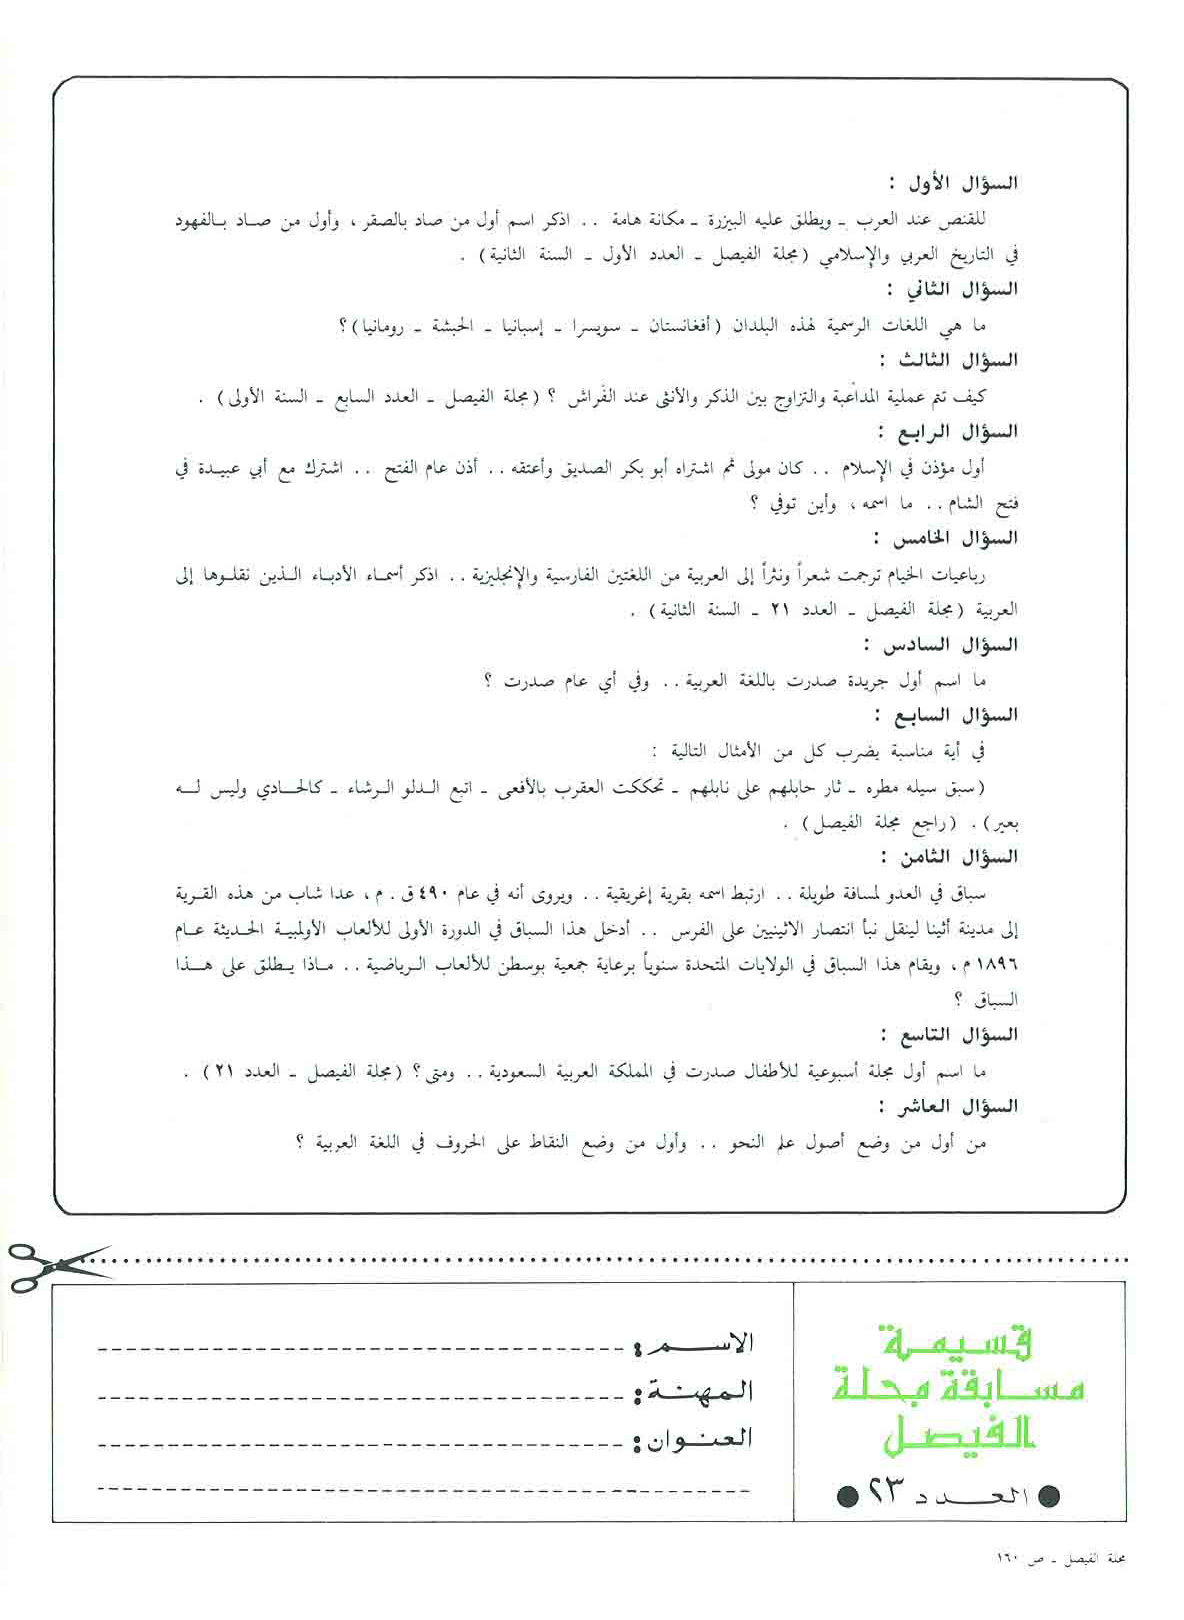 السؤال الأول :
للقنص عند العرب ـ ويطلق عليه البيزرة ـ مكانة هامة . . اذكر اسم أول من صاد بالصقر ، وأول من صاد بالفهود
في التاريخ العربي والإسلامي (مجلة الفيصل ـ العدد الأول ـ السنة الثانية) .
السؤال الثاني :
ما هي اللغات الرسمية لهذه البلدان (أفغانستان ـ سويسرا ـ إسبانيا ـ الحبشة ـ رومانيا)؟
السؤال الثالث :
كيف تتم عملية المداعبة والتزاوج بين الذكر والأنثى عند الفراش ؟ (مجلة الفيصل ـ العدد السابع ـ السنة الأولى) .
السؤال الرابع :
أول مؤذن في الإسلام . . كان مولى ثم اشتراه أبو بكر الصديق وأعتقه . . أذن عام الفتح . . اشترك مع أبي عبيدة في
فتح الشام . . ما اسمه ، وأين توفي ؟
السؤال الخامس :
رباعيات الخيام ترجمت شعراً ونثراً إلى العربية من اللغتين الفارسية والإنجليزية . . اذكر أسماء الأدباء الذين نقلوها إلى
العربية (مجلة الفيصل ـ العدد ٢١ ـ السنة الثانية) .
السؤال السادس :
ما اسم أول جريدة صدرت باللغة العربية . . وفي أي عام صدرت ؟
السؤال السابع :
في أية مناسبة يضرب كل من الأمثال التالية :
(سبق سيله مطره ـ ثار حابلهم على نابلهم ـ تحككت العقرب بالأفعى ـ اتبع الدلو الرشاء ـ كالحادي وليس له
بعير) . (راجع مجلة الفيصل) .
السؤال الثامن :
سباق في العدو لمسافة طويلة . . ارتبط اسمه بقرية إغريقية . . ويروى أنه في عام ٤٩٠ ق . م ، عدا شاب من هذه القرية
إلى مدينة أثينا لينقل نبأ انتصار الاثينيين على الفرس . . أدخل هذا السباق في الدورة الأولى للألعاب الأولمبية الحديثة عام
١٨٩٦ م ، ويقام هذا السباق في الولايات المتحدة سنوياً برعاية جمعية بوسطن للألعاب الرياضية . . ماذا يطلق على هذا
السباق ؟
السؤال التاسع :
ما اسم أول مجلة أسبوعية للأطفال صدرت في المملكة العربية السعودية . . ومتى ؟ (مجلة الفيصل ـ العدد ٢١) .
السؤال العاشر :
من أول من وضع أصول علم النحو . . وأول من وضع النقاط على الحروف في اللغة العربية ؟
قسيمة
مسابقة مجلة
الفيصل
● العدد ٢٣ ●
الاسم :
المهنة :
العنوان :
مجلة الفيصل ـ ص ١٦٠